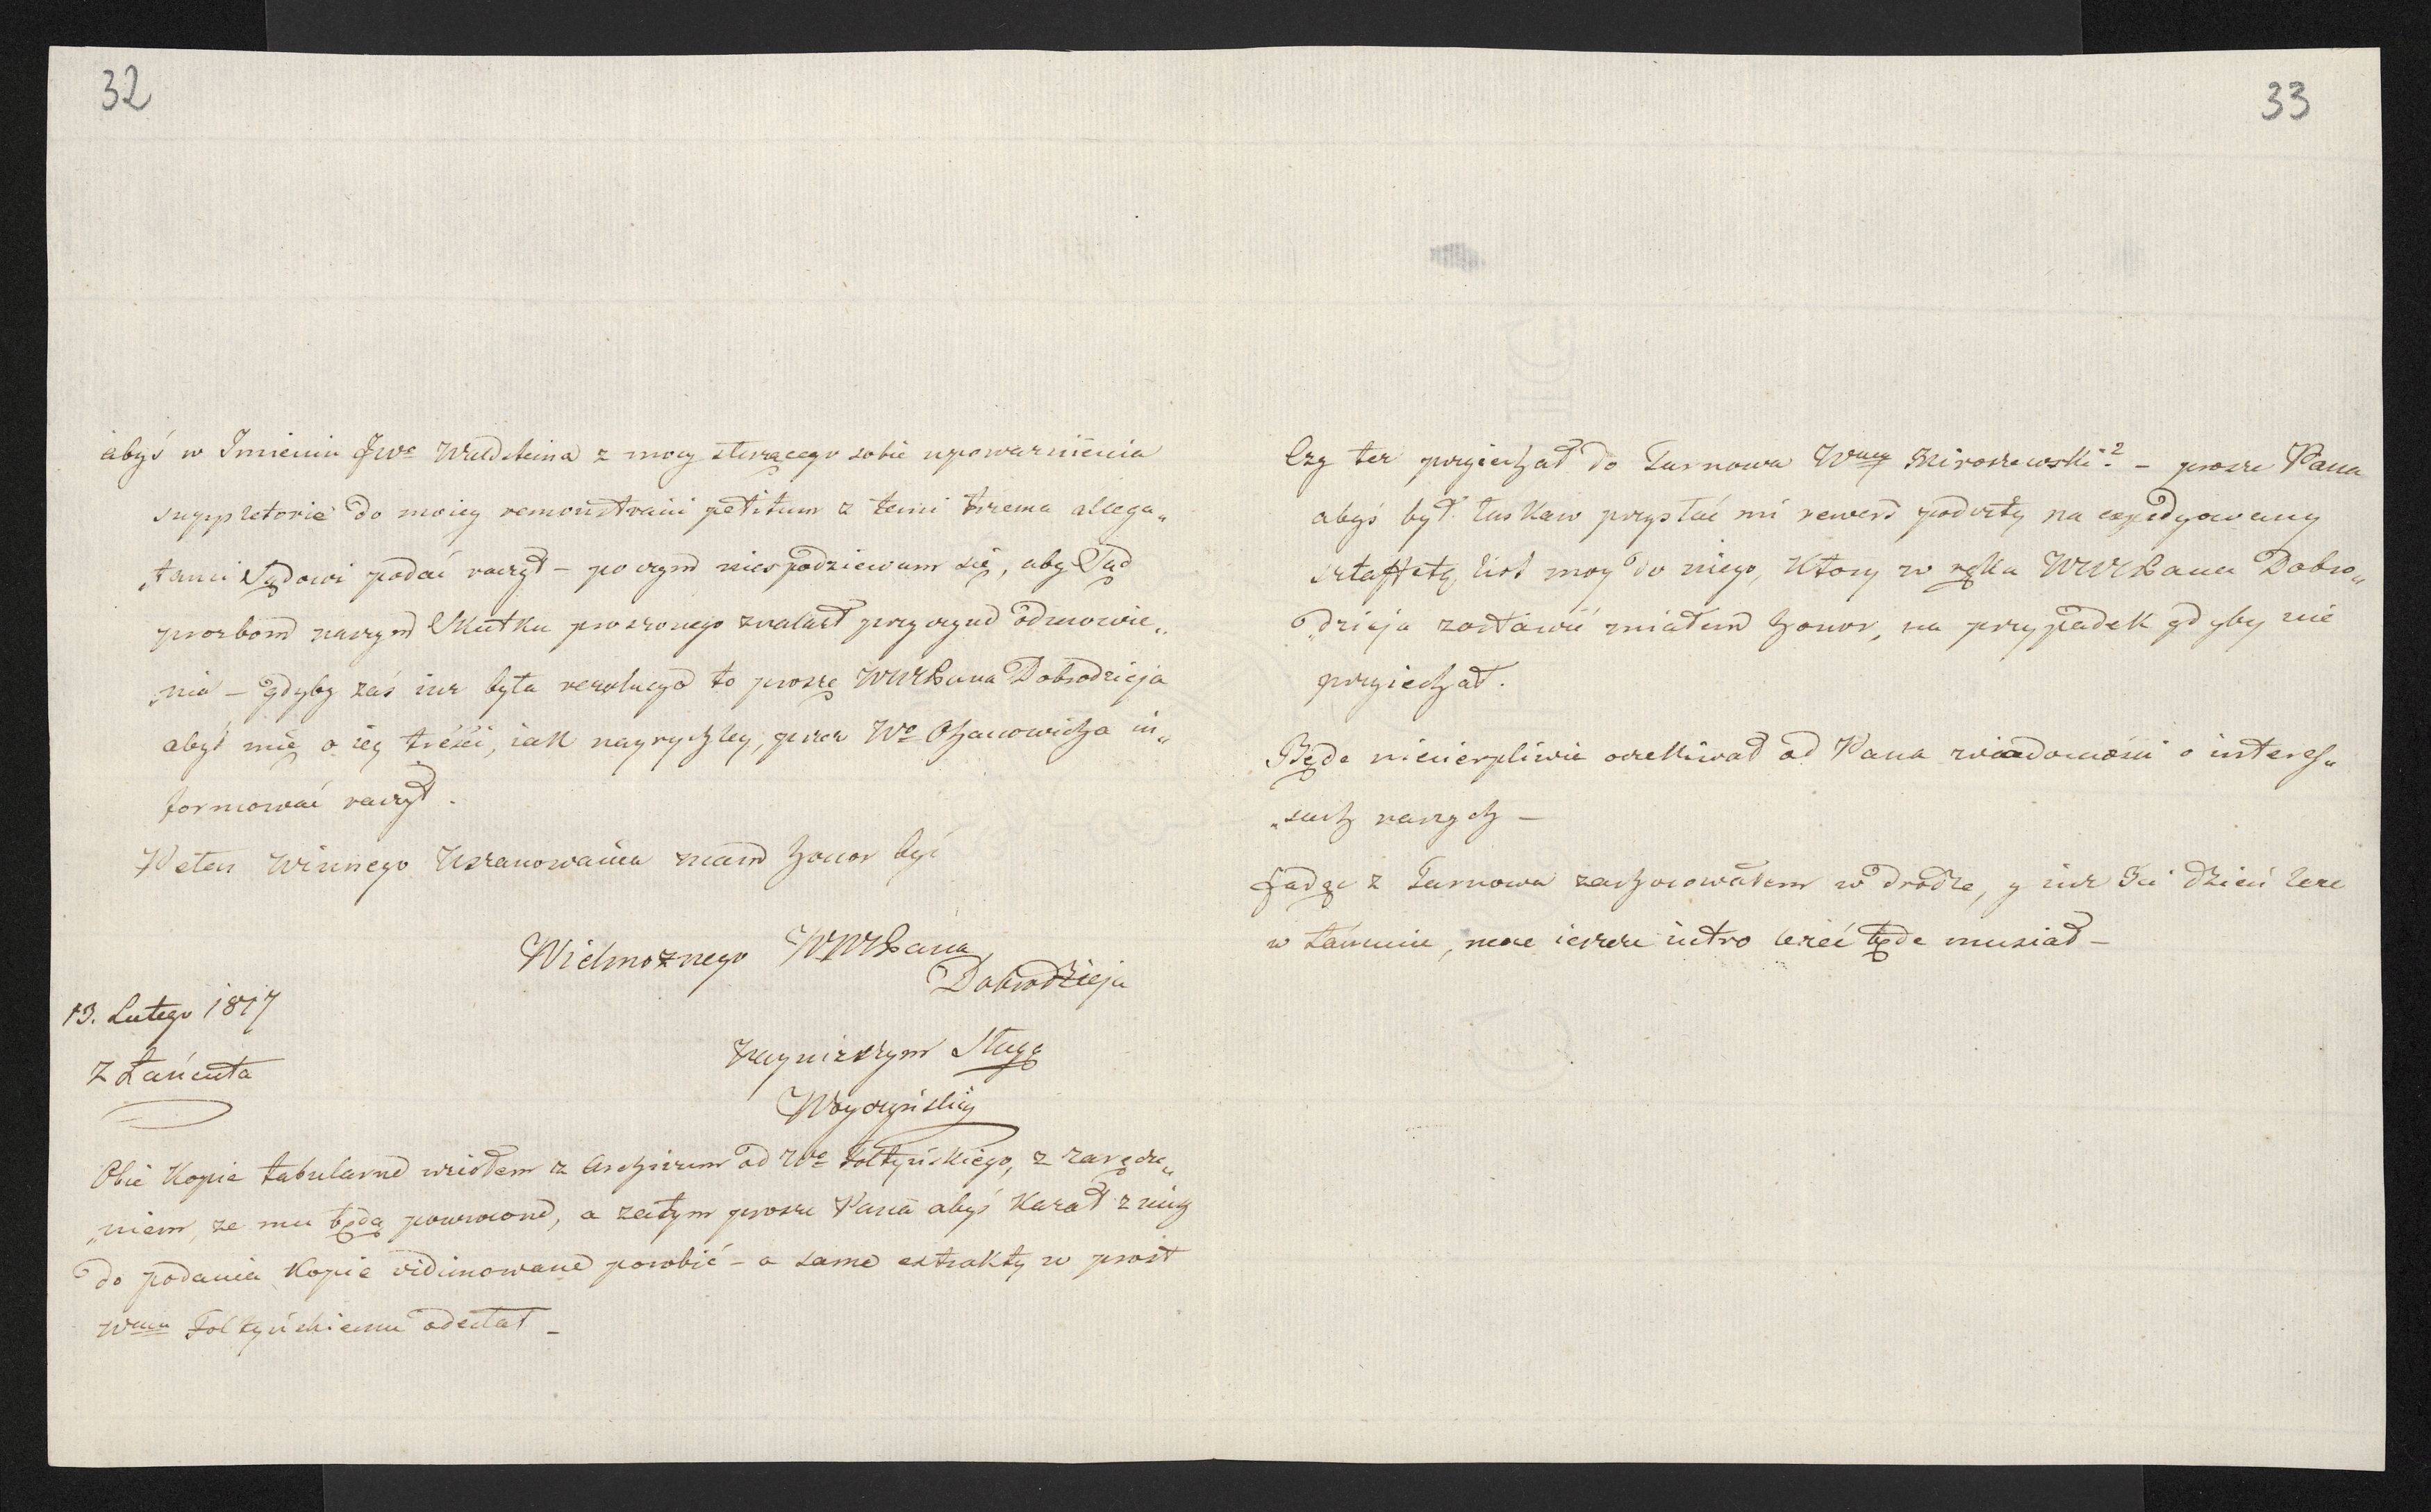 32
abyś w Imieniu JWo Waldsteina z mocy służącego sobie upoważnienia
suppletorie do moiey remonstracii petitum z temi trzema allega„
„tami Sądowi podać raczył – po czym niespodziewam się, aby Sąd
prozbom naszym Skutku proszonego znalazł przyczynę odmowie„
„nia – gdyby zaś iuż była rezolucya to proszę WWPana Dobrodzieja
abyś mię o iey treści, iak nayrychley, przez Wo in„
formować raczył.
Pełen winnego Uszanowania mam honor być
Wielmożnego WWPana
Dobrodzieja
13. Lutego 1817
z Łańcuta
Naynizszym Sługą
Woyczyński
Obie Kopie tabularne wziołem z Archivum od Wo Fołtyńskiego, z zaręcze„
„niem, ze mu będą powrocone, a zatym prosze Pana abyś kazał z nich
do podania Kopie vidimowane porobić – a same extrakty w prost
Wmu Fołtyńskiemu odesłał –
33
Czy tez przyiechał do Tarnowa Wny Miroszewski? – prosze Pana
abyś był łaskaw przysłać mi rewers poczty na expedyowany
sztaffetą list moy do niego, Ktory w ręku WWPana Dobro„
„dzieja zostawić miałem honor, na przypadek gdyby nie
przyiechał.
Będe niecierpliwie oczekiwał od Pana wiadomości o interes„
„sach naszych –
Jadąc z Tarnowa zachorowałem w drodze, y iuz 3ci dzień leze
w Łańcucie, moze ieszcze iutro lezeć będe musiał –